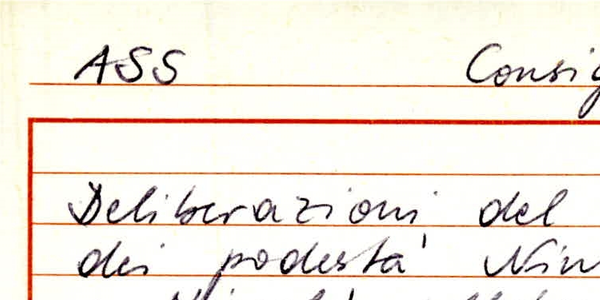 ASS Consig
Deliberazioni del
dei podestà Nin